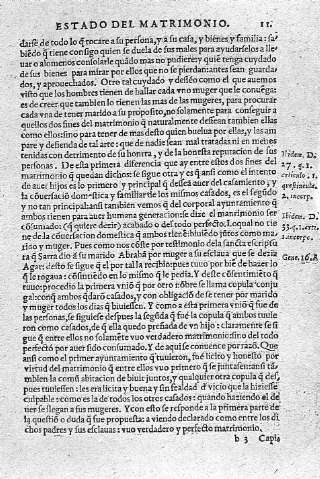 ESTADO DEL MATRIMONIO. 11.
darse de todo lo q̃ tocare a su persona, y a su casa, y bienes y familia: sa
biẽdo q̃ tiene consigo quien se duela de sus males para ayudarselos a lle
uar o alomenos consolarle quãdo mas no pudiere y quiẽ tenga cuydado
de sus bienes para mirar por ellos que no se pierdan: antes sean guarda
dos, y aprouechados. Otro tal cuydado y desseo como el que auemos
visto que los hombres tienen de hallar cada vno muger que le cõuẽga:
es de creer que tambien lo tienen las mas de las mugeres, para procurar
cada vna de tener marido a su proposito, no solamente para conseguir a
quellos dos fines del matrimonio q̃ naturalmente dessean tambien ellas
como ellos: sino para tener de mas desto quien buelua por ellas, y las am
pare y defienda de tal arte: que de nadie sean mal tratadas ni en menos
tenidas con detrimento de su honrra, y de la honesta reputacion de sus
personas. De esta primera differencia que ay entre estos dos fines del
matrimonio q̃ quedan dichos: se sigue otra y es q̃ ansi como el intento
de auer hijos es lo primero y principal q̃ dessea auer del casamiento, y
la cõuersaciõ domestica y familiar de los mismos casados, es el segũdo
y no tan principal: ansi tambien vemos q̃ del corporal ayuntamiento q̃
ambos tienen para auer humana generacion: se dize el matrimonio ser
cõsumado: (q̃ quiere dezir) acabado o del todo perfecto. Lo qual no tie
ne de la cõuersacion domestica q̃ ambos tienẽ biuiẽdo jũtos como ma
rido y muger. Pues como nos cõste por testimonio dela sancta escriptu
ra q̃ Sarra dio a su marido Abrahã por muger a su esclaua que se dezia
Agar: desto se sigue q̃ el por tal la recibio: pues tuuo por biẽ de hazer lo
q̃ le rogaua: cõsintiẽdo en lo mismo q̃ le pedia. Y deste cõsentimiẽto q̃
tuuo: procedio la primera vniõ q̃ por otro nõbre se llama copula cõnju
gal: con q̃ ambos q̃darõ casados, y con obligaciõ de se tener por marido
y muger todos los dias q̃ biuiessen. Y como a esta primera vniõ q̃ fue de
las personas, se siguiesse despues la segũda q̃ fue la copula q̃ ambos tuuie
ron como casados, de q̃ ella quedo preñada de vn hijo: claramente se si
gue q̃ entre ellos no solamẽte vuo verdadero matrimonio: sino del todo
perfecto por auer sido consumado. Y de aqui se comience por razõ. Que
ansi como el primer ayuntamiento q̃ tuuieron, fue licito y honesto por
virtud del matrimonio q̃ entre ellos vuo primero q̃ se juntassen: ansi tã
bien la comũ habitacion de biuir juntos, y qualquier otra copula q̃ des,
pues tuuiessen: les era licita y buena y sin fealdad d̃ vicio que la hiziesse
culpable: como es la de todos los otros casados: quando haziendo el de
uer se llegan a sus mugeres. Y con esto se responde a la primera parte de
la questiõ o duda q̃ fue propuesta: a viendo declarado como entre los di
chos padres y sus esclauas: vuo verdadero y perfecto matrimonio.
b 3 Capit
Ibidem. D.
27. q. 1.
articulo. 1.
2. incorp.
Ibidem. D.
33. q. 1. arti.
2. incorpo.
Gene. 16. B